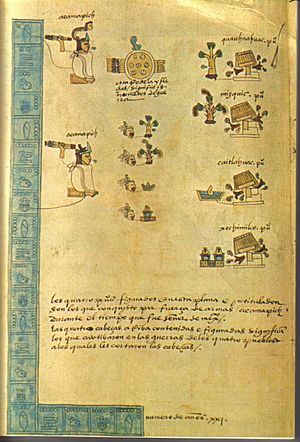 acamapich
quauhnahuac. pu°
mizquic. pu°
acamapich
cuitlahuac. pu°
xochimilco. pu°
los quatro pu°s figurados en esta plana e yntitulados
son los que conquisto por fuerça de armas acamapich
durante el tiempo que fue señor de mexico
las quatro cabeças arriba contenidas e figuradas significa
los que cautibaron en las guerras de los quatro pueblos
a los quales les cortaron las cabeças /
numero de años. xxi.